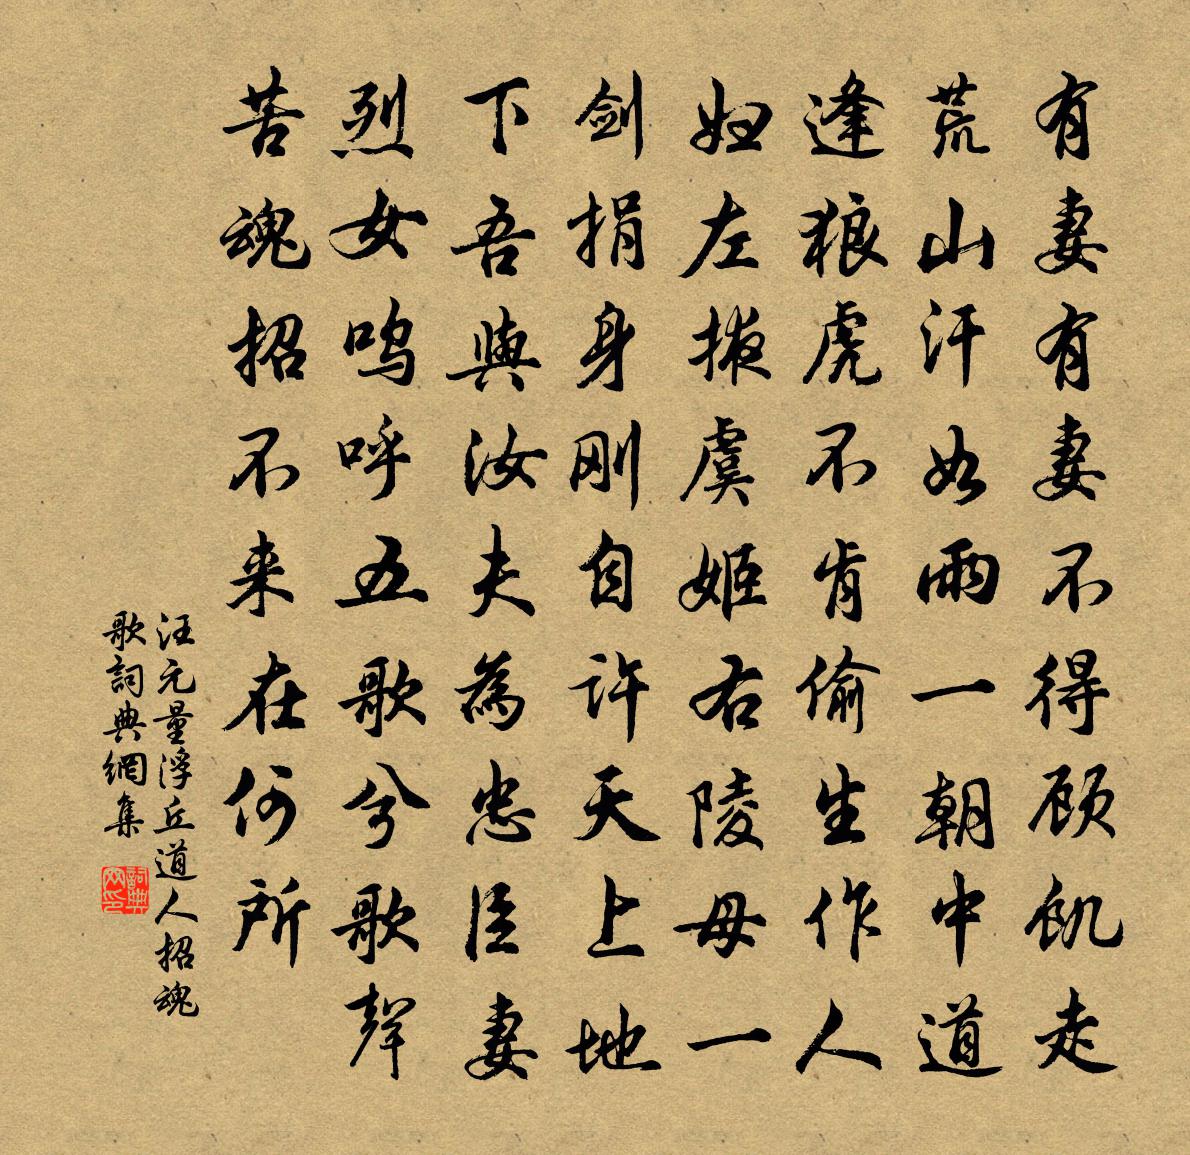 有妻有妻不得顾飢走
荒山汗如雨一朝中道
逢狼虎不肯偷生作人
妇左掖虞姬右陵母一
剑捐身刚自许天上地
下吾與汝夫為忠臣妻
烈女呜呼五歌兮歌聲
苦魂招不来在何所
汪元量浮丘道人招魂
歌詞典網集
詞典网印